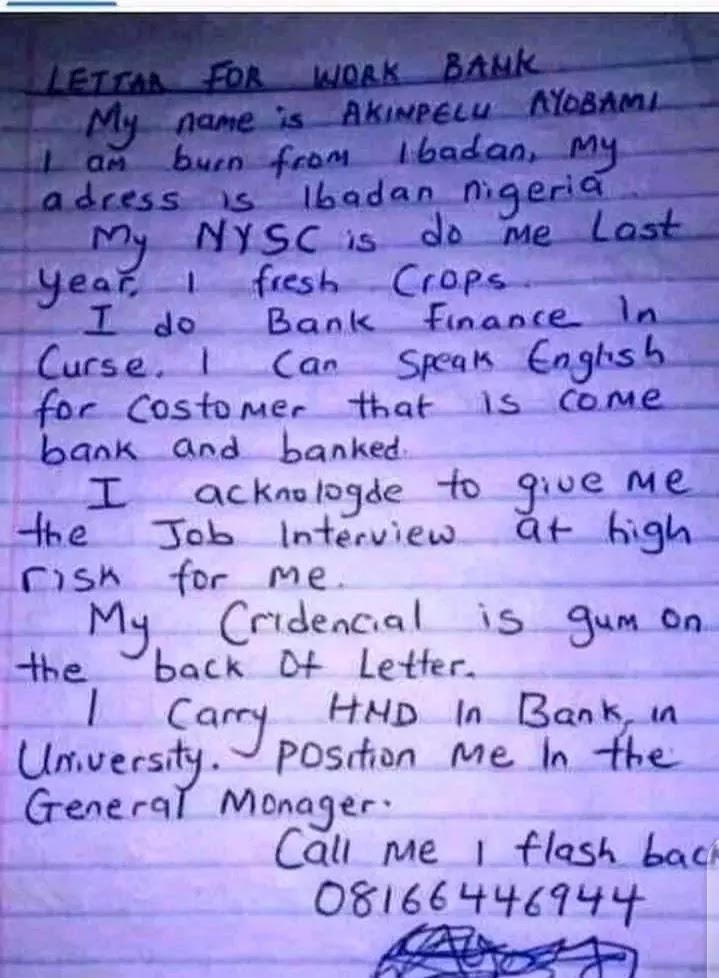 LETTAR FOR WORK BANK
My name is AKINPELU AYOBAMI
I am burn from Ibadan, My
adress is Ibadan nigeria
My NYSC is do me Last
year, I fresh Crops.
I do Bank finance In
Curse. I Can Speak English
for Costomer that is come
bank and banked.
I acknologde to give me
the Job Interview at high
risk for me.
My Cridencial is gum on
the back Of Letter.
I Carry HND In Bank, in
University. Position Me In the
General Manager.
Call Me I flash back
08166446944